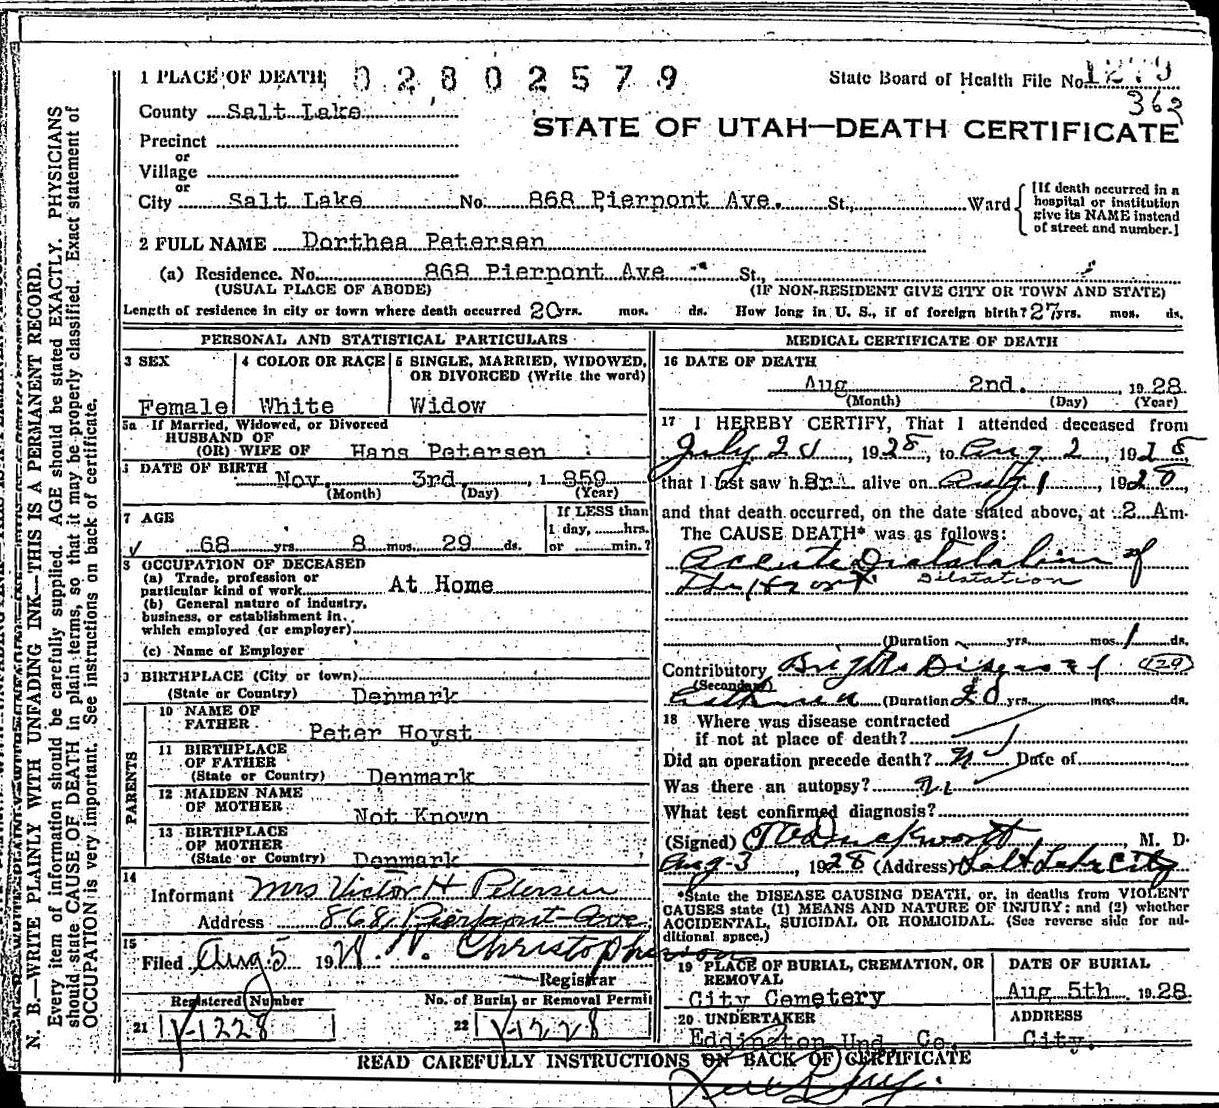 1 PLACE OF DEATH 02802579 State Board of Health File No. 1279
363
County Salt Lake
STATE OF UTAH—DEATH CERTIFICATE
Precinct
or
Village
or
City Salt Lake No. 868 Pierpont Ave. St., Ward
[If death occurred in a
hospital or institution
give its NAME instead
of street and number.]
2 FULL NAME Dorthea Petersen
(a) Residence. No. 868 Pierpont Ave St.,
(USUAL PLACE OF ABODE) (IF NON-RESIDENT GIVE CITY OR TOWN AND STATE)
Length of residence in city or town where death occurred 20 yrs. mos. ds. How long in U. S., if of foreign birth? 27 yrs. mos. ds.
PERSONAL AND STATISTICAL PARTICULARS
3 SEX
Female
4 COLOR OR RACE
White
5 SINGLE, MARRIED, WIDOWED,
OR DIVORCED (Write the word)
Widow
5a If Married, Widowed, or Divorced
HUSBAND OF
(OR) WIFE OF Hans Petersen
6 DATE OF BIRTH
Nov. 3rd, 1 859
(Month) (Day) (Year)
7 AGE
68 yrs. 8 mos. 29 ds.
If LESS than
1 day, hrs.
or min.?
8 OCCUPATION OF DECEASED
(a) Trade, profession or
particular kind of work At Home
(b) General nature of industry,
business, or establishment in
which employed (or employer)
(c) Name of Employer
9 BIRTHPLACE (City or town)
(State or Country) Denmark
PARENTS
10 NAME OF
FATHER Peter Hoyst
11 BIRTHPLACE
OF FATHER
(State or Country) Denmark
12 MAIDEN NAME
OF MOTHER Not Known
13 BIRTHPLACE
OF MOTHER
(State or Country) Denmark
14
Informant Mrs Victor H Petersen
Address 868 Pierpont Ave
15
Filed Aug 5 19 W. N. Christopherson
Registrar
Registered Number
21 V-1228
No. of Burial or Removal Permit
22 V-1228
MEDICAL CERTIFICATE OF DEATH
16 DATE OF DEATH
Aug 2nd. , 1928
(Month) (Day) (Year)
17 I HEREBY CERTIFY, That I attended deceased from
July 20, 1928, to Aug 2, 1928
that I last saw her alive on Aug 1, 1928,
and that death occurred, on the date stated above, at 2 Am.
The CAUSE DEATH* was as follows:
Accute Diatalation of
the Heart Dilatation
(Duration yrs. mos. 1 ds.
Contributory Brights Disease 129
(Secondary)
Asthma (Duration 20 yrs. mos. ds.
18 Where was disease contracted
if not at place of death?
Did an operation precede death? No Date of
Was there an autopsy? No
What test confirmed diagnosis?
(Signed) Duckworth, M. D.
Aug 3, 1928 (Address) Salt Lake City
*State the DISEASE CAUSING DEATH, or, in deaths from VIOLENT
CAUSES state (1) MEANS AND NATURE OF INJURY; and (2) whether
ACCIDENTAL, SUICIDAL OR HOMICIDAL. (See reverse side for ad-
ditional space.)
19 PLACE OF BURIAL, CREMATION, OR
REMOVAL
City Cemetery
DATE OF BURIAL
Aug 5th 1928
20 UNDERTAKER
Eddington Und. Co.
ADDRESS
City.
READ CAREFULLY INSTRUCTIONS ON BACK OF CERTIFICATE
N. B.—WRITE PLAINLY WITH UNFADING INK—THIS IS A PERMANENT RECORD.
Every item of information should be carefully supplied. AGE should be stated EXACTLY. PHYSICIANS
should state CAUSE OF DEATH in plain terms, so that it may be properly classified. Exact statement of
OCCUPATION is very important. See instructions on back of certificate.